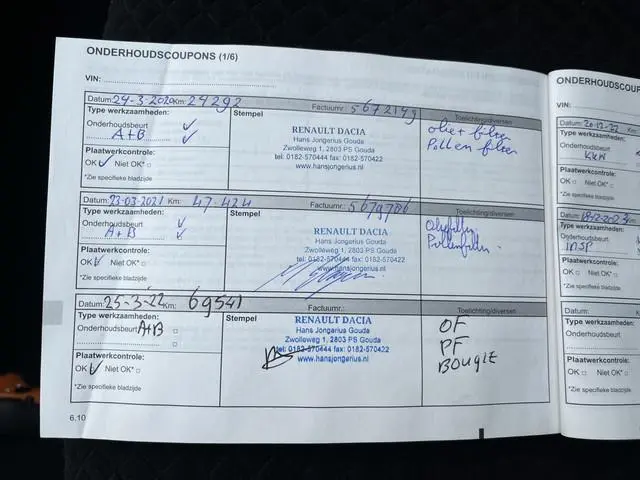 ONDERHOUDSCOUPONS (1/6)
VIN:
Datum: 24-3-2020 Km: 24292 Factuurnr.: 5672149 Toelichting/diversen
Type werkzaamheden: Stempel
Onderhoudsbeurt
A+B
RENAULT DACIA
Hans Jongerius Gouda
Zwolleweg 1, 2803 PS Gouda
tel: 0182-570444 fax: 0182-570441
www.hansjongerius.nl
olie+ filter
Pollen filter
Plaatwerkcontrole:
OK Niet OK*
*Zie specifieke bladzijde
Datum: 23-03-2021 Km: 47.424 Factuurnr.: 5679786 Toelichting/diversen
Type werkzaamheden: Stempel
Onderhoudsbeurt
A+B
RENAULT DACIA
Hans Jongerius Gouda
Zwolleweg 1, 2803 PS Gouda
tel: 0182-570444 fax: 0182-570441
www.hansjongerius.nl
Pollenfilter
Plaatwerkcontrole:
OK Niet OK*
*Zie specifieke bladzijde
Datum: 25-3-22 Km: 69541 Factuurnr.: Toelichting/diversen
Type werkzaamheden: Stempel
Onderhoudsbeurt A+B
RENAULT DACIA
Hans Jongerius Gouda
Zwolleweg 1, 2803 PS Gouda
tel: 0182-570444 fax: 0182-570441
www.hansjongerius.nl
OF
PF
BOUGIE
Plaatwerkcontrole:
OK Niet OK*
*Zie specifieke bladzijde
6.10
ONDERHOUDSCOUP
VIN:
Datum: 20-12-22 Km:
Type werkzaamheden:
Onderhoudsbeurt
Plaatwerkcontrole:
OK Niet OK*
*Zie specifieke bladz
Datum: Km:
Type werkzaamheden:
Onderhoudsbeurt
INSP
Plaatwerkcontrole:
OK Niet OK*
*Zie specifieke bladz
Datum:
Type werkzaamheden:
Onderhoudsbeurt
Plaatwerkcontrole:
OK Niet OK*
*Zie specifieke bladz